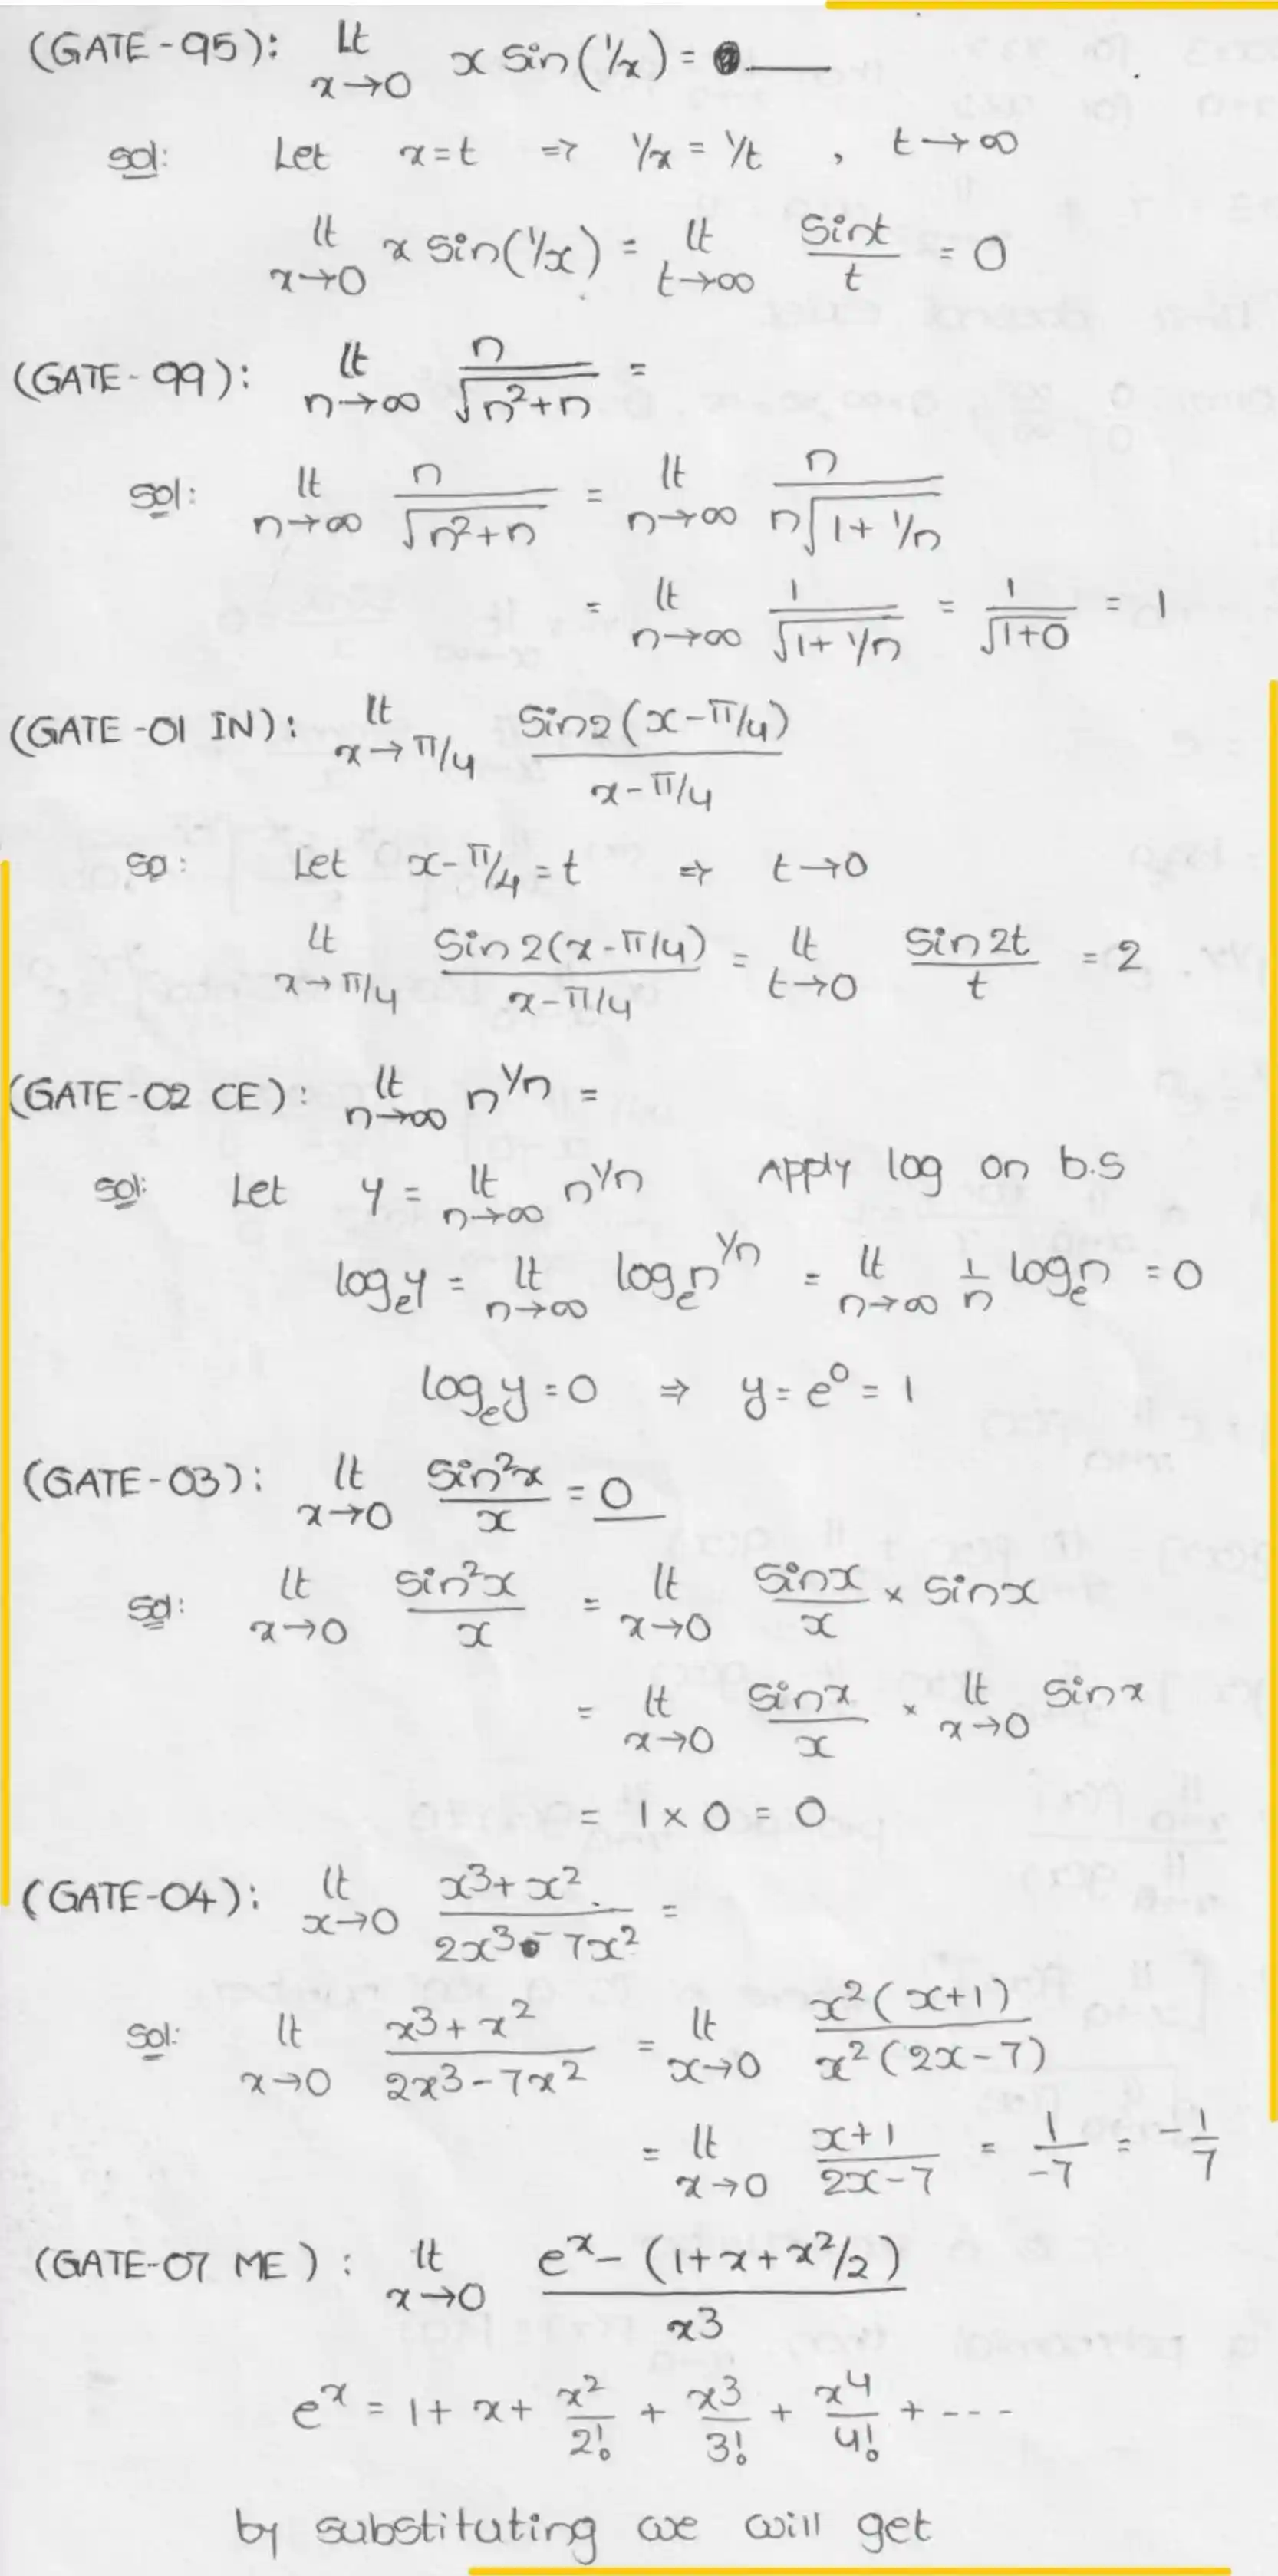 (GATE-95): lt x→0 x sin(1/x) = ___
sol: Let x=t => 1/x = 1/t , t→∞
lt x→0 x sin(1/x) = lt t→∞ sint/t = 0
(GATE-99): lt n→∞ n/√(n²+n) =
sol: lt n→∞ n/√(n²+n) = lt n→∞ n/(n√(1+1/n))
= lt n→∞ 1/√(1+1/n) = 1/√(1+0) = 1
(GATE-01 IN): lt x→π/4 Sin2(x-π/4)/(x-π/4)
so: Let x-π/4=t => t→0
lt x→π/4 Sin2(x-π/4)/(x-π/4) = lt t→0 Sin2t/t = 2
(GATE-02 CE): lt n→∞ n^(1/n) =
sol: Let y = lt n→∞ n^(1/n) Apply log on b.s
logₑy = lt n→∞ logₑn^(1/n) = lt n→∞ 1/n logₑn = 0
logₑy=0 ⇒ y=e⁰=1
(GATE-03): lt x→0 Sin²x/x = 0
sol: lt x→0 sin²x/x = lt x→0 sinx/x × sinx
= lt x→0 sinx/x × lt x→0 sinx
= 1×0=0
(GATE-04): lt x→0 (x³+x²)/(2x³-7x²) =
sol: lt x→0 (x³+x²)/(2x³-7x²) = lt x→0 x²(x+1)/x²(2x-7)
= lt x→0 (x+1)/(2x-7) = 1/-7 = -1/7
(GATE-07 ME): lt x→0 (eˣ-(1+x+x²/2))/x³
eˣ = 1+x+x²/2! + x³/3! + x⁴/4! + ---
by substituting we will get